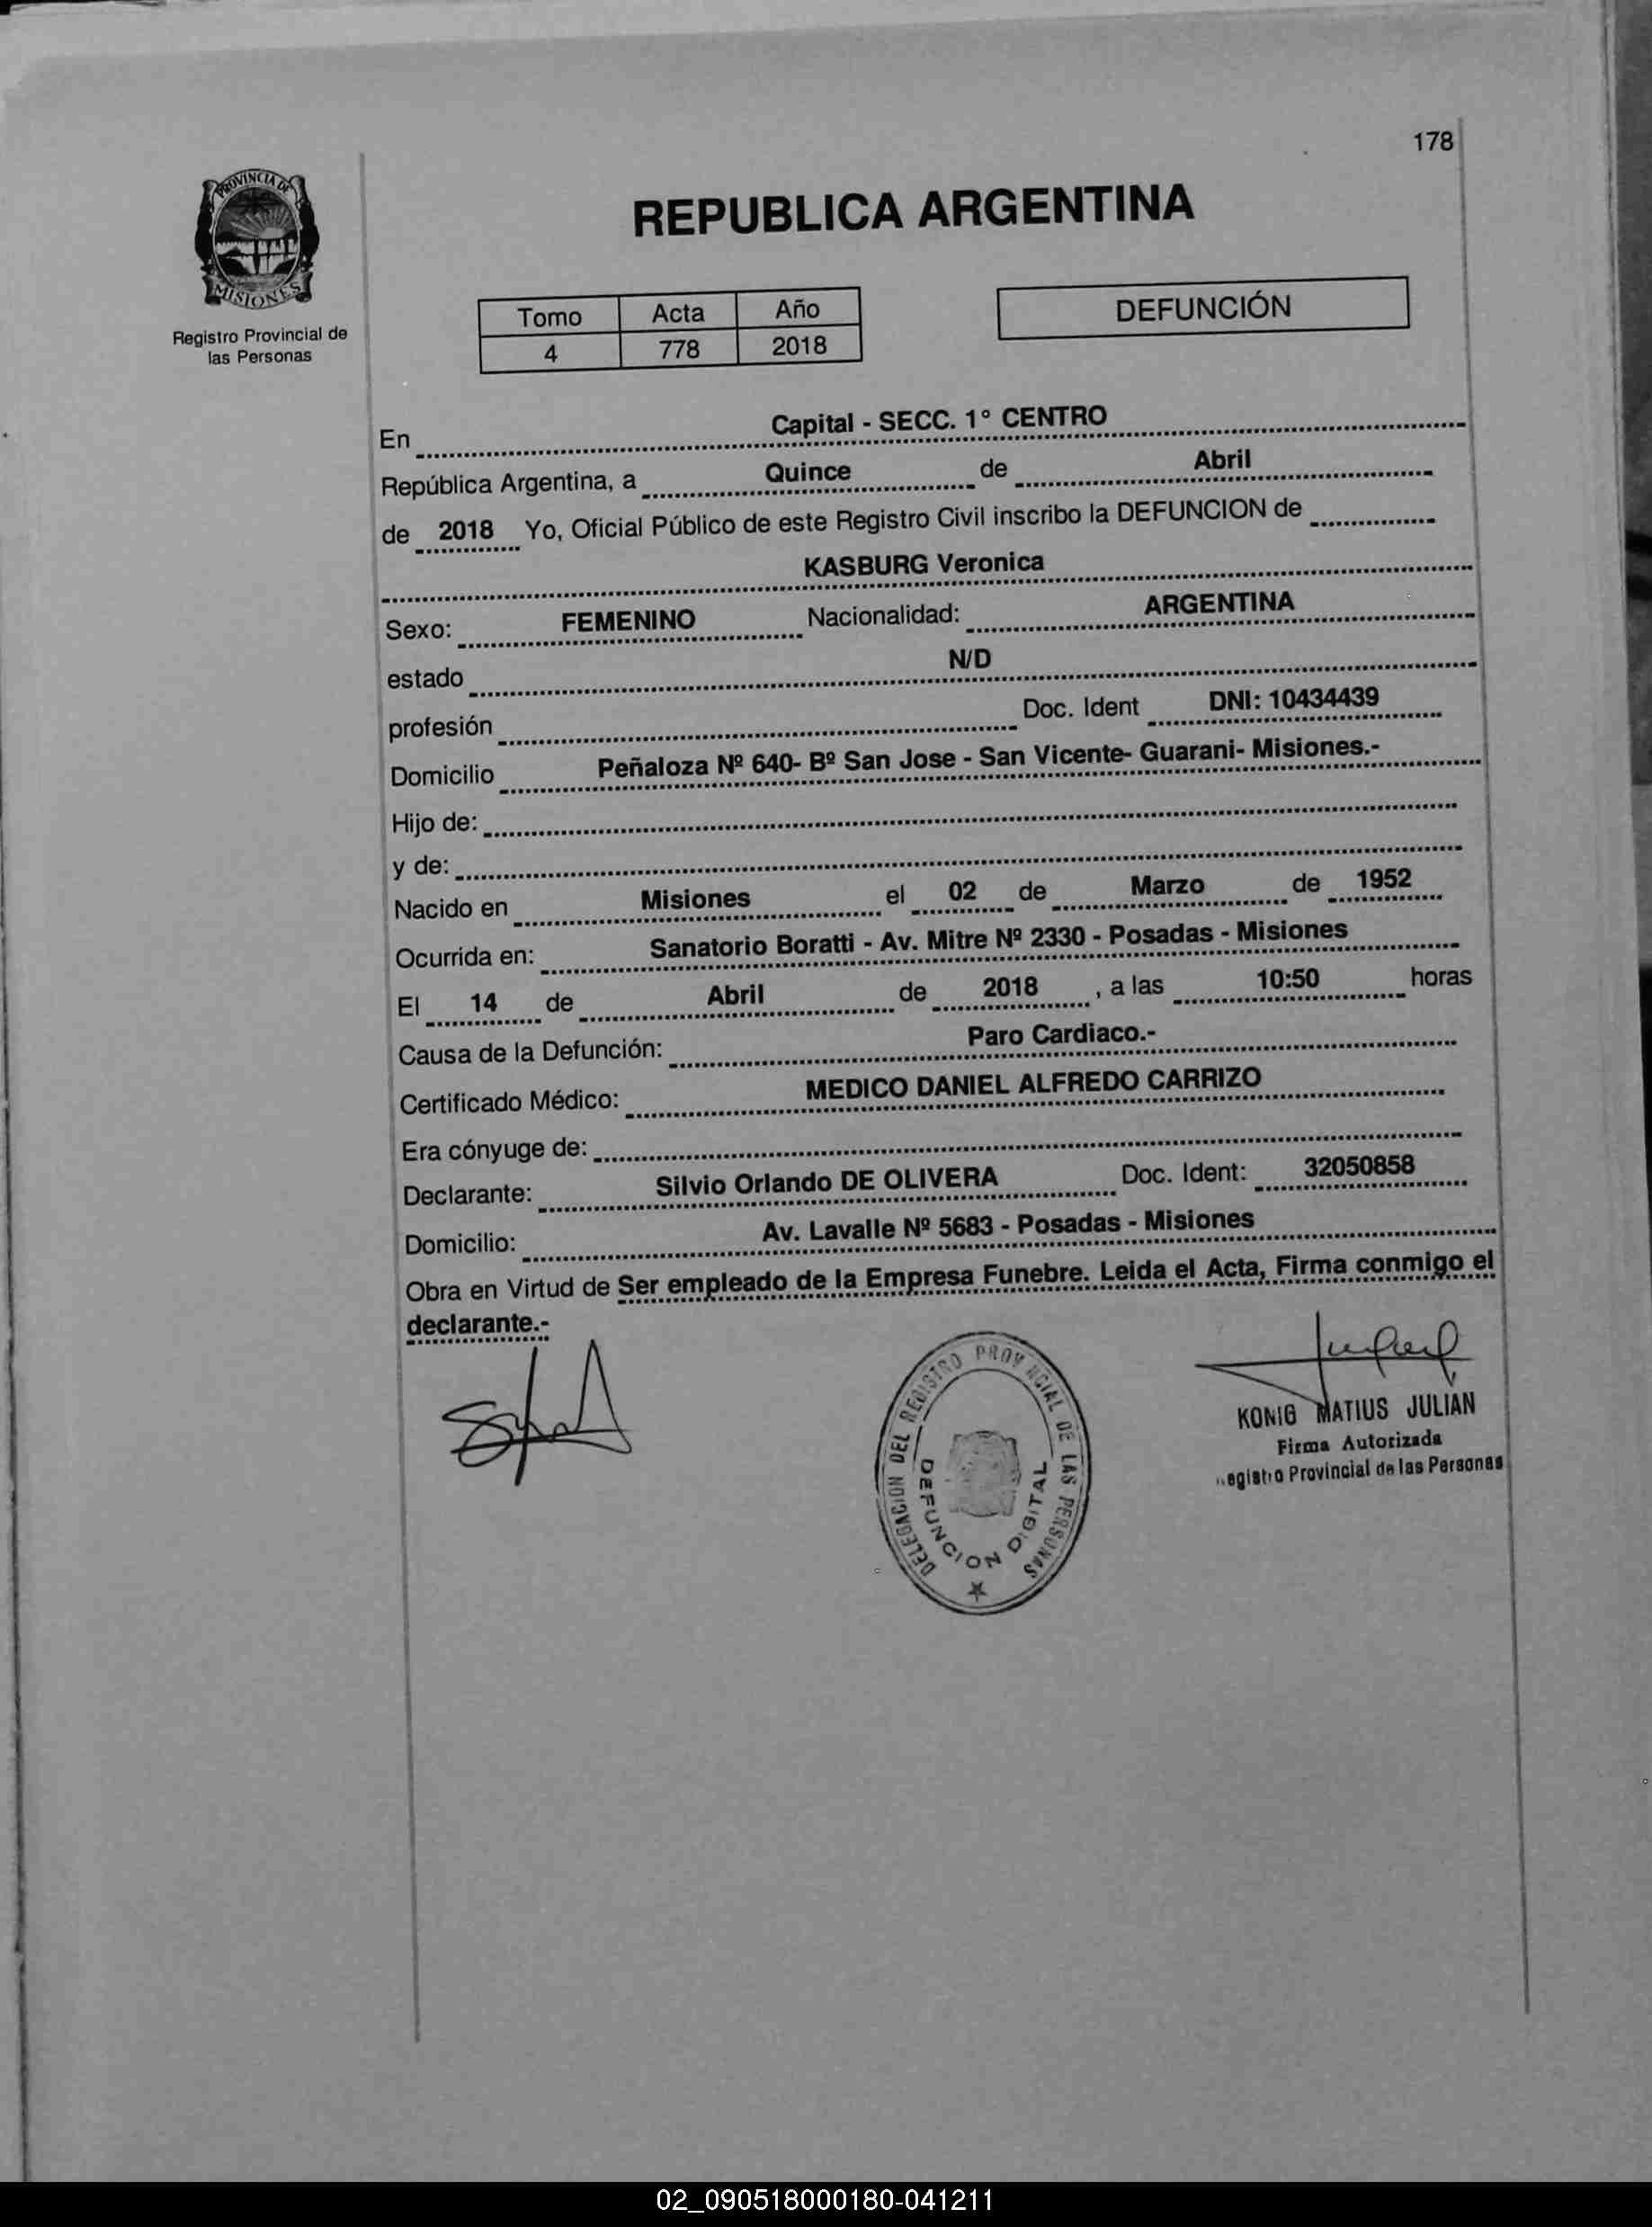 178
PROVINCIA DE
MISIONES
Registro Provincial de
las Personas
REPUBLICA ARGENTINA
Tomo Acta Año
4 778 2018
DEFUNCIÓN
En Capital - SECC. 1° CENTRO
República Argentina, a Quince de Abril
de 2018 Yo, Oficial Público de este Registro Civil inscribo la DEFUNCION de
KASBURG Veronica
Sexo: FEMENINO Nacionalidad: ARGENTINA
estado N/D
profesión Doc. Ident DNI: 10434439
Domicilio Peñaloza Nº 640- Bº San Jose - San Vicente- Guarani- Misiones.-
Hijo de:
y de:
Nacido en Misiones el 02 de Marzo de 1952
Ocurrida en: Sanatorio Boratti - Av. Mitre Nº 2330 - Posadas - Misiones
El 14 de Abril de 2018 , a las 10:50 horas
Causa de la Defunción: Paro Cardiaco.-
Certificado Médico: MEDICO DANIEL ALFREDO CARRIZO
Era cónyuge de:
Declarante: Silvio Orlando DE OLIVERA Doc. Ident: 32050858
Domicilio: Av. Lavalle Nº 5683 - Posadas - Misiones
Obra en Virtud de Ser empleado de la Empresa Funebre. Leida el Acta, Firma conmigo el
declarante.-
DELEGACION DEL REGISTRO PROVINCIAL DE LAS PERSONAS
DEFUNCION DIGITAL
KONIG MATIUS JULIAN
Firma Autorizada
egistro Provincial de las Personas
02_090518000180-041211